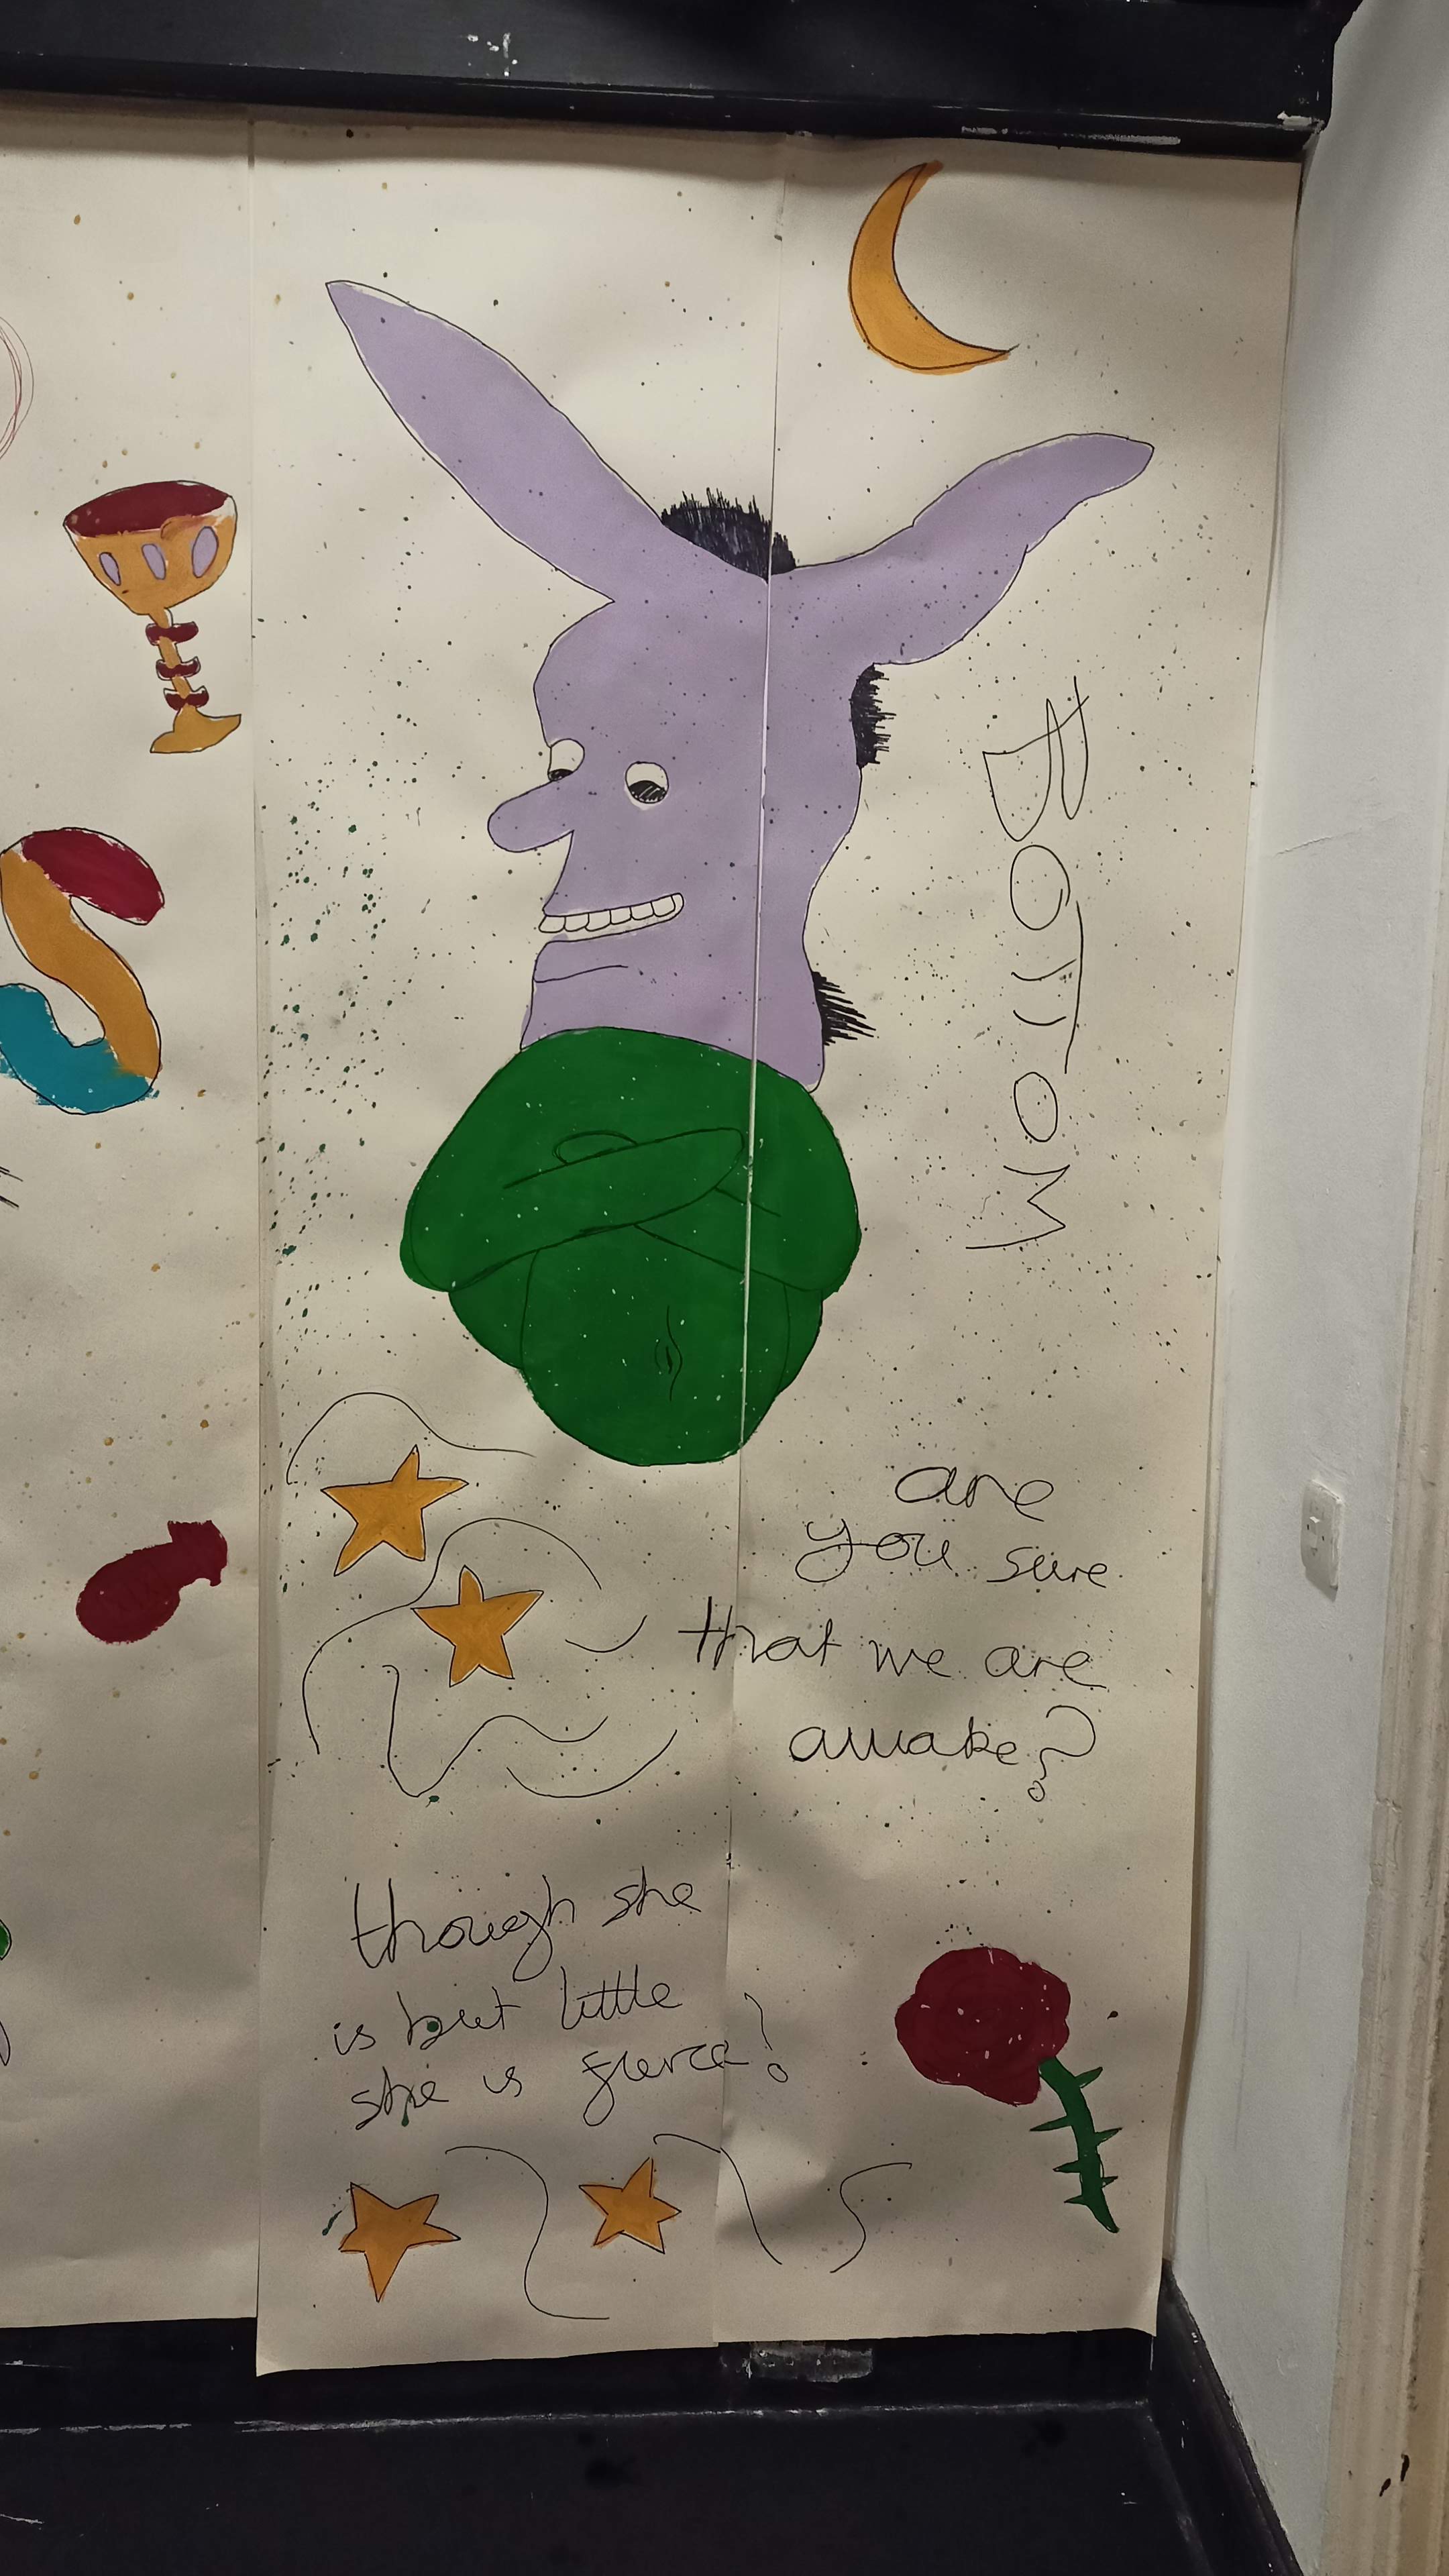 BOTTOM
are
you sure
that we are
awake?
though she
is but little
she is fierce!